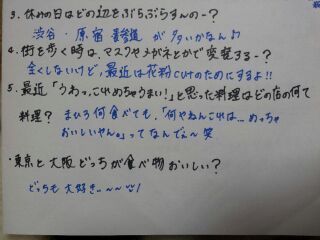 3. 休みの日はどの辺をぶらぶらすんのー?
渋谷・原宿・表参道 が多いかなん♪
4. 街を歩く時は、マスクやメガネとかで変装するー?
全くしないけど、最近は花粉cutのためにするよ!!
5. 最近「うわっ、これめちゃうまい!」と思った料理はどの店の何て
料理? まひろ何食べても、「何やねんこれは…めっちゃ
おいしいやん。」ってなんでぇ〜笑
・東京と大阪どっちが食べ物おいしい?
どっちも大好き…〜〜!